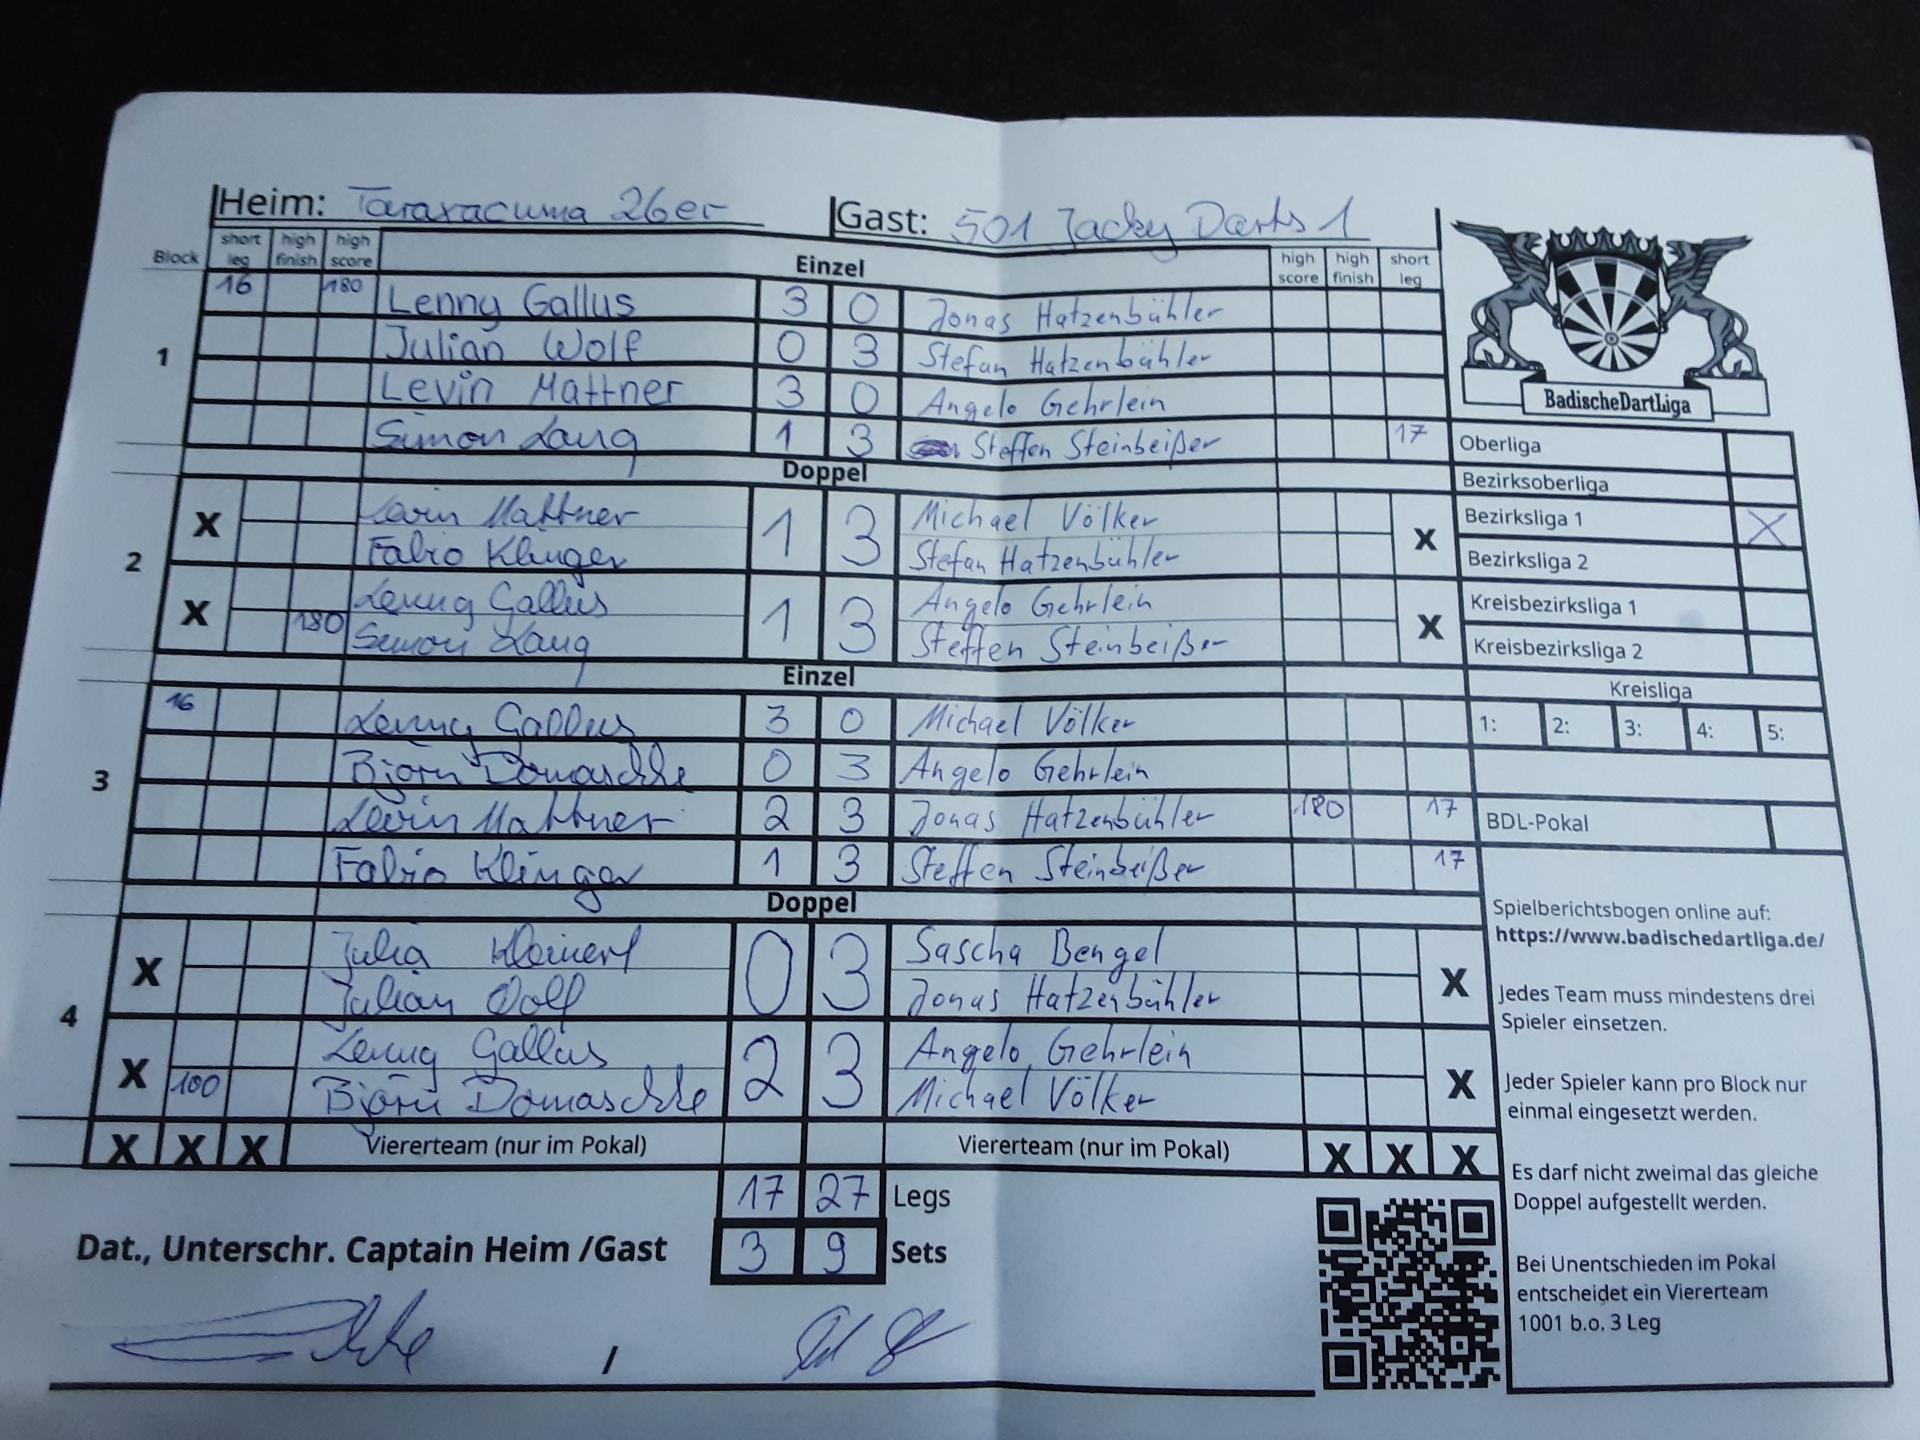 Heim: Taraxacuma 26er Gast: 501 Jacky Darts 1
Block short leg high finish high score Einzel high score high finish short leg
16 180 Lenny Gallus 3 0 Jonas Hatzenbühler
1 Julian Wolf 0 3 Stefan Hatzenbühler
Levin Mattner 3 0 Angelo Gehrlein
BadischeDartLiga
Simon Lang 1 3 Steffen Steinbeißer 17
Oberliga
Doppel
Bezirksoberliga
X Levin Mattner 1 3 Michael Völker X
Bezirksliga 1 X
2 Fabio Klinger Stefan Hatzenbühler
Bezirksliga 2
X Lenny Gallus 1 3 Angelo Gehrlein X
Kreisbezirksliga 1
180 Simon Lang Steffen Steinbeißer
Kreisbezirksliga 2
Einzel
Kreisliga
16 Lenny Gallus 3 0 Michael Völker
1: 2: 3: 4: 5:
3 Björn Domaschke 0 3 Angelo Gehrlein
Levin Mattner 2 3 Jonas Hatzenbühler 180 17
BDL-Pokal
Fabio Klinger 1 3 Steffen Steinbeißer 17
Doppel
Spielberichtsbogen online auf:
https://www.badischedartliga.de/
X Julia Kleinert 0 3 Sascha Bengel X
Julian Wolf Jonas Hatzenbühler
Jedes Team muss mindestens drei
Spieler einsetzen.
4
X Lenny Gallus 2 3 Angelo Gehrlein X
100 Björn Domaschke Michael Völker
Jeder Spieler kann pro Block nur
einmal eingesetzt werden.
X X X Viererteam (nur im Pokal) Viererteam (nur im Pokal) X X X
Es darf nicht zweimal das gleiche
Doppel aufgestellt werden.
17 27 Legs
Dat., Unterschr. Captain Heim /Gast 3 9 Sets
Bei Unentschieden im Pokal
entscheidet ein Viererteam
1001 b.o. 3 Leg
/